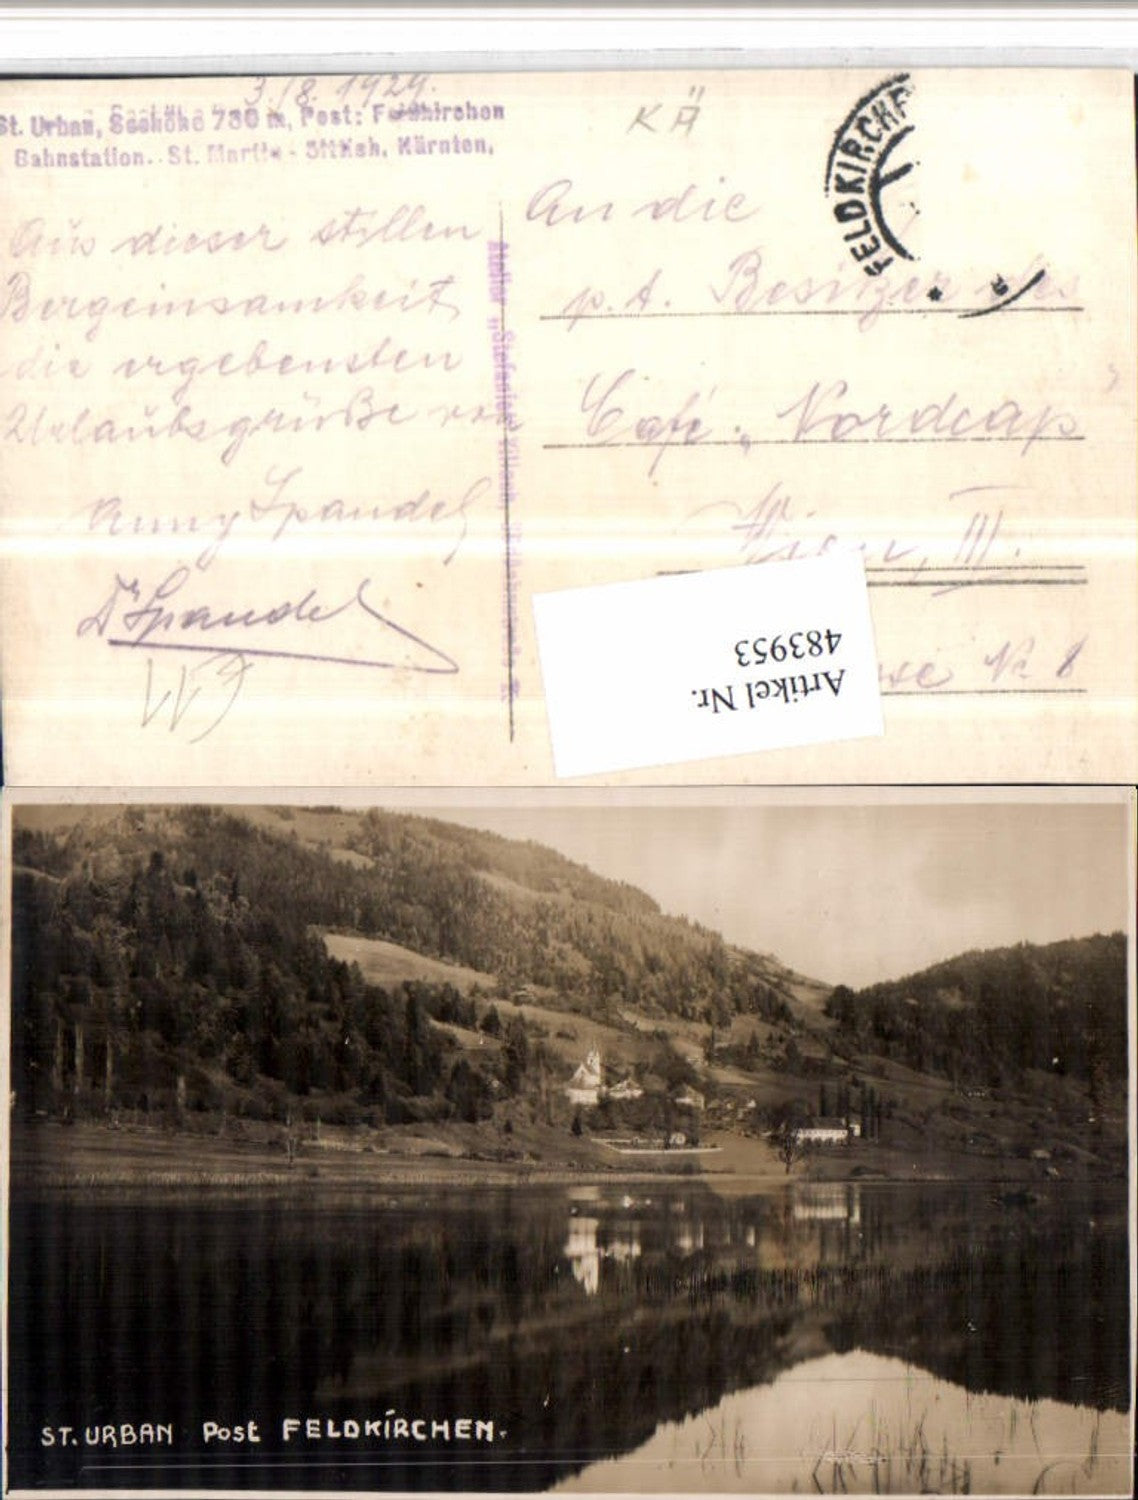 3./8. 1929.
St. Urban, Seehöhe 730 m, Post: Feldkirchen
Bahnstation. St. Martin - Sittich, Kärnten,
Aus dieser stillen
Bergeinsamkeit
die ergebensten
Urlaubsgrüße von
Anny Spandel
Dr Spandel
KÄ
FELDKIRCHE
An die
p. t. Besitzer des
Café „Nordcap"
Wien, III.
No 8
Atelier „Stefanie"
Artikel Nr.
483953
ST. URBAN Post FELDKIRCHEN.